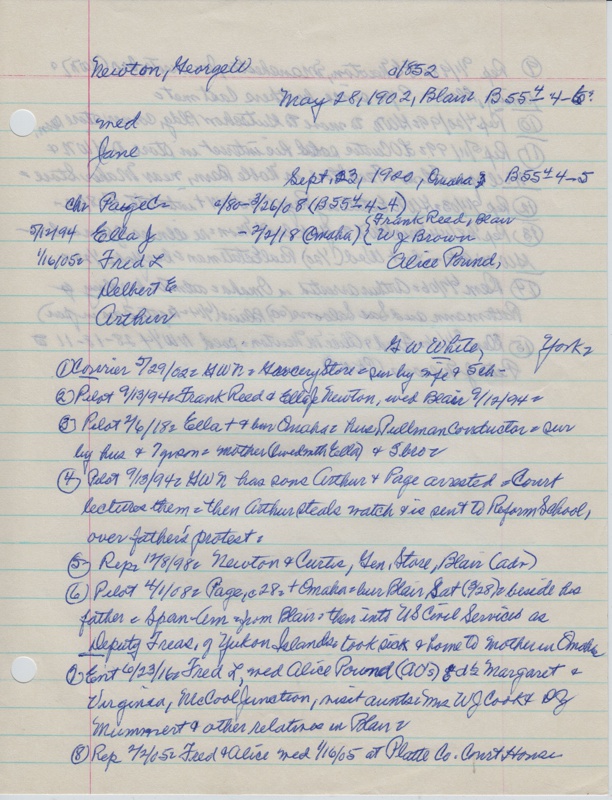 Newton, George W a/852
May 28, 1902, Blair B 55 4-6?
med
Jane
Sept. 23, 1900, Omaha B 55 4-5
chr Paige C a/80-3/26/08 (B 55 4-4)
9/12/94 Ella J - 2/2/18 (Omaha) { Frank Reed, Blair
W J Brown
1/16/05 Fred L Alice Pound,
Delbert E
Arthur
G W White, York
① Courier 5/29/02 = GWN = Grocery Store = sur by wife & 5ch-
② Pilot 9/13/94 = Frank Reed & Ella J Newton, wed Blair 9/12/94 =
③ Pilot 2/6/18 = Ella + & bur Omaha = hus Pullman Conductor = sur
by hus & 7 yr son = mother (lived with Ella) & 3 bro
④ Pilot 9/13/94 = GWN has sons Arthur & Page arrested = Court
lectures them = then Arthur steals watch & is sent to Reform School,
over father's protest =
⑤ Rep 12/8/98 = Newton & Curtis, Gen. Store, Blair (adv)
⑥ Pilot 4/1/08 = Page, c 28 = + Omaha = bur Blair, Sat (3/28) = beside his
father = Span-Am from Blair = then into US Civil Services as
Deputy Treas. of Yukon Islands = took sick & home to mother in Omaha
⑦ Ent 6/23/16 = Fred L, med Alice Pound (AO's) & ds Margaret &
Virginia, McCool Junction, visit aunts Mrs W J Cook & D Z
Mummert & other relatives in Blair
⑧ Rep 2/2/05 = Fred & Alice med 1/16/05 at Platte Co. Court House